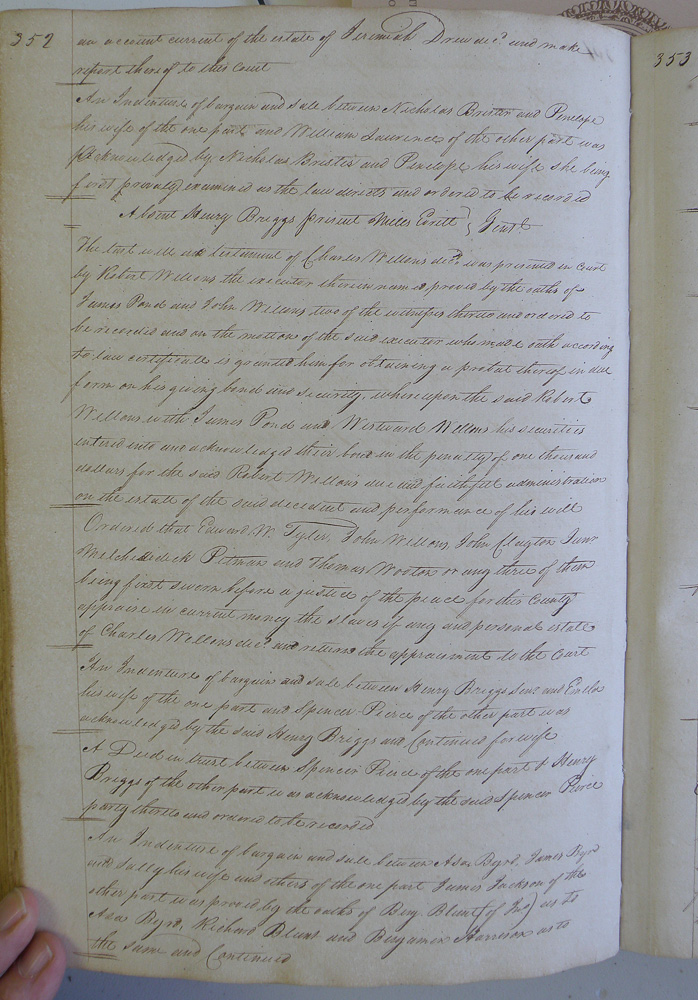 352
an account current of the estate of Jeremiah Drew decd. and make
report thereof to this Court
An Indenture of bargain and sale between Nicholas Brister and Penelope
his wife of the one part and William Laurence of the other part was
Acknowledged by Nicholas Brister and Penelope his wife she being
first privately examined as the law directs and ordered to be recorded
Absent Henry Briggs present Miles Gent.
The last will and testament of Charles Wellons decd. was presented in Court
by Robert Wellons the executor therein named proved by the oaths of
James Pond and John Wellons two of the witnesses thereto and ordered to
be recorded and on the motion of the said executor who made oath according
to law certificate is granted him for obtaining a probat thereof in due
form on his giving bond and security, whereupon the said Robert
Wellons with James Pond and Westward Wellons his securities
entered into and acknowledged their bond in the penalty of one thousand
dollars for the said Robert Wellons due and faithfull administration
on the estate of the said decedent and performance of his will
Ordered that Edward W. Tyler, John Wellons, John Clayton Junr
Melchedeck Pitman and Thomas Wooton or any three of them
being first sworn before a justice of the peace for this County
appraise in current money the slaves if any and personal estate
of Charles Wellons decd. and return the appraisment to the Court
An Indenture of bargain and sale between Henry Briggs Senr and
his wife of the one part and Spencer Pierce of the other part was
acknowledged by the said Henry Briggs and Continued for wife
A Deed in trust between Spencer Pierce of the one part & Henry
Briggs of the other part was acknowledged by the said Spencer Pierce
party thereto and ordered to be recorded
An Indenture of bargain and sale between Asa Byrd James Byrd
and Sally his wife and others of the one part James Jackson of the
other part was proved by the oaths of Benj. Blunt (of Jno) as to
Asa Byrd, Richard Blunt and Benjamin Harrison as to
the same and Continued
353